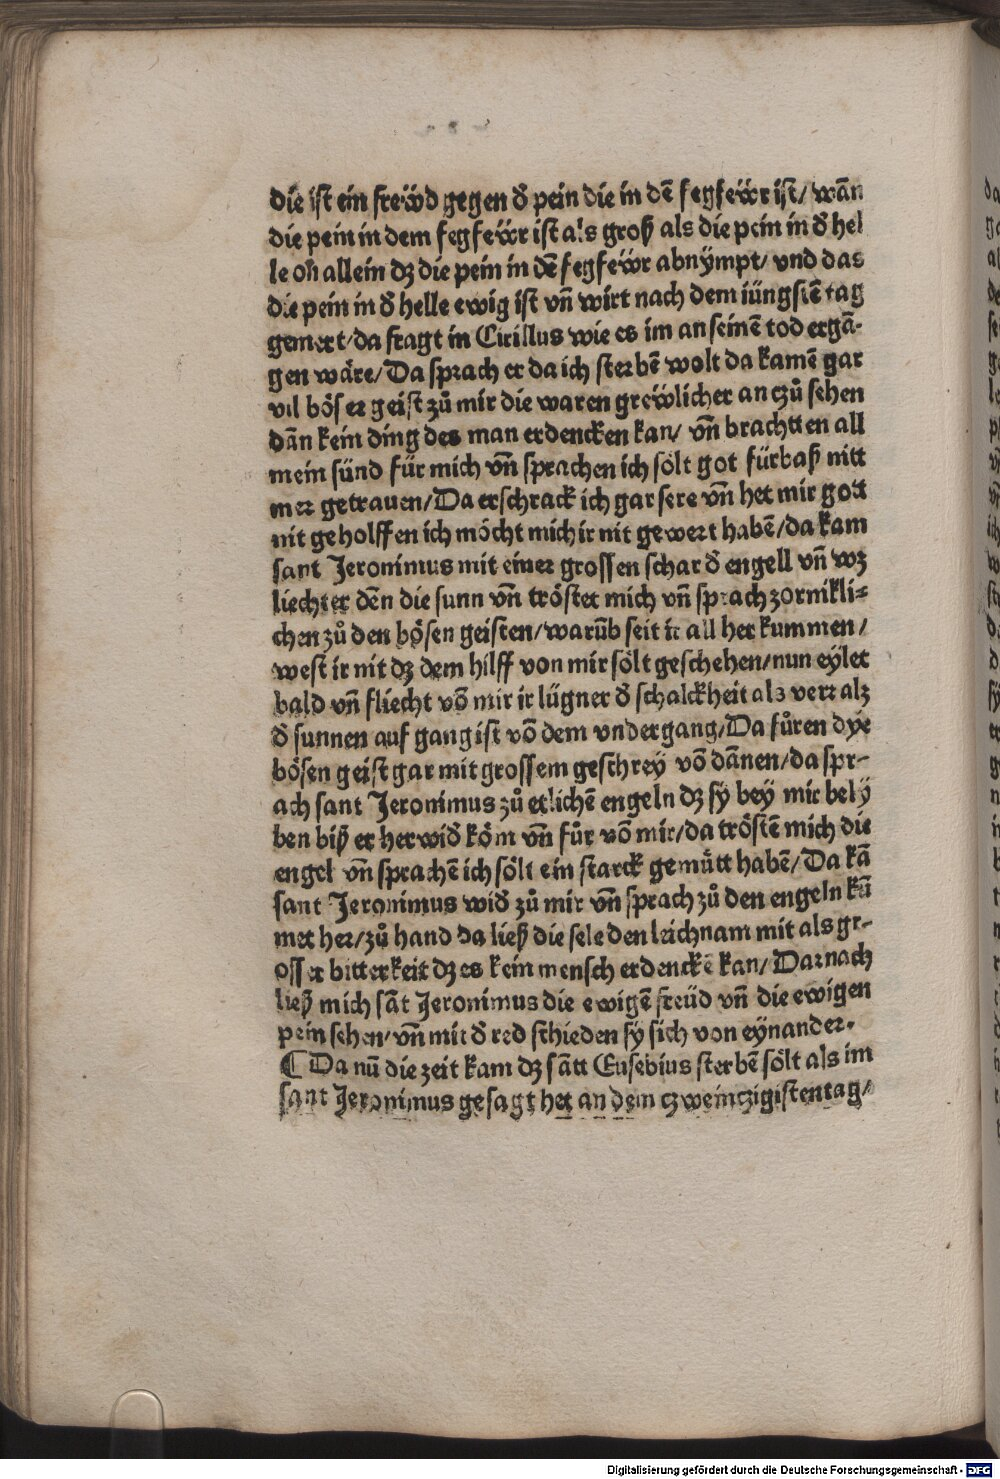 die ist ein frewͤd gegen ð pein die in dē fegfewͤr ist/ wān
die pein in dem fegfewͤr ist als groß als die pein in ð hel
le on allein dz die pein in dē fegfewͤr abnÿmpt/ vnd das
die pein in ð helle ewig ist vn̄ wirt nach dem iüngstē tag
gemert/da fragt in Cirillus wie es im an seinē tod ergā-
gen wäre/Da sprach er da ich sterbē wolt da kamē gar
vil böser geist zů mir die waren grewͤlicher an czů sehen
dān kein ding des man erdencken kan/ vn̄ brachtten all
mein sünd für mich vn̄ sprachen ich sölt got fürbaß nitt
mer getrauen/Da erschrack ich gar sere vn̄ het mir gott
nit geholffen ich möcht mich ir nit gewert habē/da kam
sant Jeronimus mit einer grossen schar ð engell vn̄ wz
liechter dēn die sunn vn̄ tröstet mich vn̄ sprach zornikli-
chen zů den bösen geisten/warūb seit ir all her kummen/
west ir nit dz dem hilff von mir sölt geschehen/nun eÿlet
bald vn̄ fliecht vō mir ir lügner ð schalckheit alz verr alz
ð sunnen auf gang ist vō dem vndergang/Da fůren dye
bösen geist gar mit grossem geschreÿ vō dānen/da spr-
ach sant Jeronimus zů etlichē engeln dz sÿ beÿ mir belÿ
ben biß er herwið köm vn̄ fůr vō mir/da tröstē mich die
engel vn̄ sprachē ich sölt ein starck gemütt habē/Da kā
sant Jeronimus wið zů mir vn̄ sprach zů den engeln kū
met her/zů hand da ließ die sele den leichnam mit als gr-
osser bitterkeit dz es kein mensch erdenckē kan/Darnach
ließ mich sāt Jeronimus die ewigē freüd vn̄ die ewigen
pein sehen/vn̄ mit ð red schieden sÿ sich von eynander.
¶ Da nū die zeit kam dz sātt Eusebius sterbē sölt als im
sant Jeronimus gesagt het an dem czweinczigisten tag/
Digitalisierung gefördert durch die Deutsche Forschungsgemeinschaft - DFG